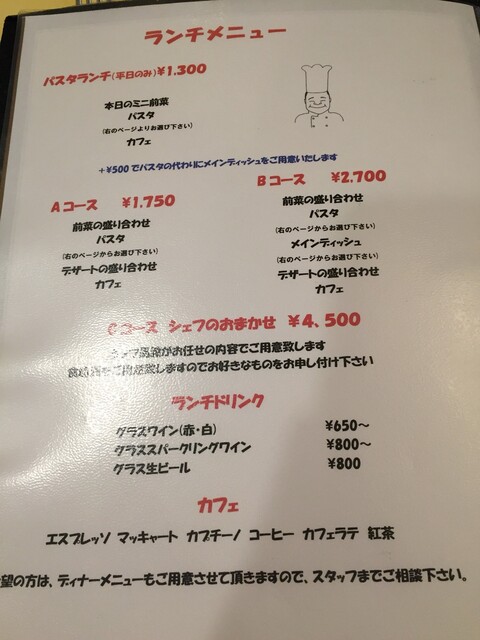 ランチメニュー
パスタランチ(平日のみ)¥1.300
本日のミニ前菜
パスタ
(右のページよりお選び下さい)
カフェ
+¥500でパスタの代わりにメインディッシュをご用意いたします
Aコース ¥1.750
前菜の盛り合わせ
パスタ
(右のページからお選び下さい)
デザートの盛り合わせ
カフェ
Bコース ¥2.700
前菜の盛り合わせ
パスタ
(右のページからお選び下さい)
メインディッシュ
(右のページからお選び下さい)
デザートの盛り合わせ
カフェ
Cコース シェフのおまかせ ¥4、500
がお任せの内容でご用意致します
致しますのでお好きなものをお申し付け下さい
ランチドリンク
グラスワイン(赤・白) ¥650～
グラススパークリングワイン ¥800～
グラス生ビール ¥800
カフェ
エスプレッソ マッキャート カプチーノ コーヒー カフェラテ 紅茶
望の方は、ディナーメニューもご用意させて頂きますので、スタッフまでご相談下さい。